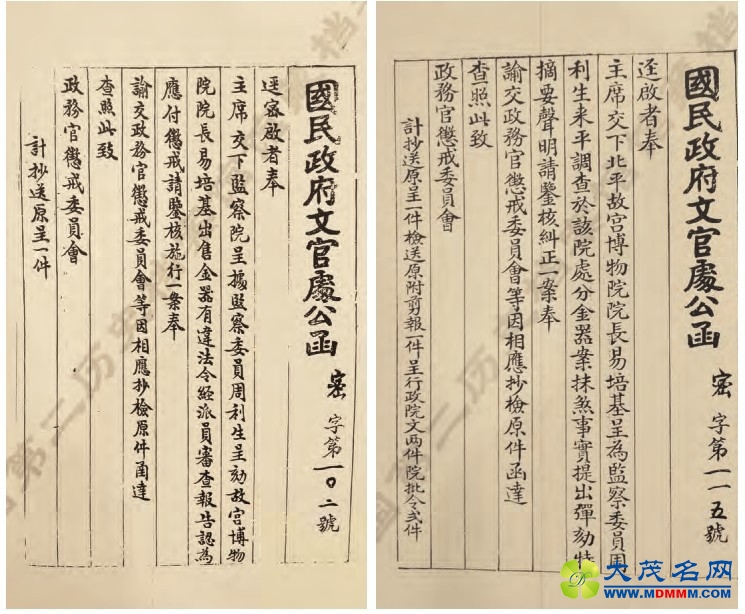 國民政府文官處公函 密 字第一〇二號
逕密啟者奉
主席交下監察院呈據監察委員周利生呈劾故宮博物
院院長易培基出售金器有違法令經派員審查報告認為
應付懲戒請鑒核施行一案奉
諭交政務官懲戒委員會等因相應抄檢原件函達
查照此致
政務官懲戒委員會
計抄送原呈一件
國民政府文官處公函 密 字第一一五號
逕啟者奉
主席交下北平故宮博物院院長易培基呈為監察委員周
利生來平調查於該院處分金器案抹煞事實提出彈劾特
摘要聲明請鑒核糾正一案奉
諭交政務官懲戒委員會等因相應抄檢原件函達
查照此致
政務官懲戒委員會
計抄送原呈一件檢送原附剪報一件呈行政院文兩件院批令弍件
大茂名网
WWW.MDMMM.COM